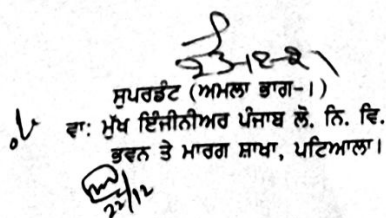 ਸੁਪਰਡੰਟ (ਅਮਲਾ ਭਾਗ-।)
ਵਾ: ਮੁੱਖ ਇੰਜੀਨੀਅਰ ਪੰਜਾਬ ਲੋ. ਨਿ. ਵਿ.
ਭਵਨ ਤੇ ਮਾਰਗ ਸ਼ਾਖਾ, ਪਟਿਆਲਾ।
22/12